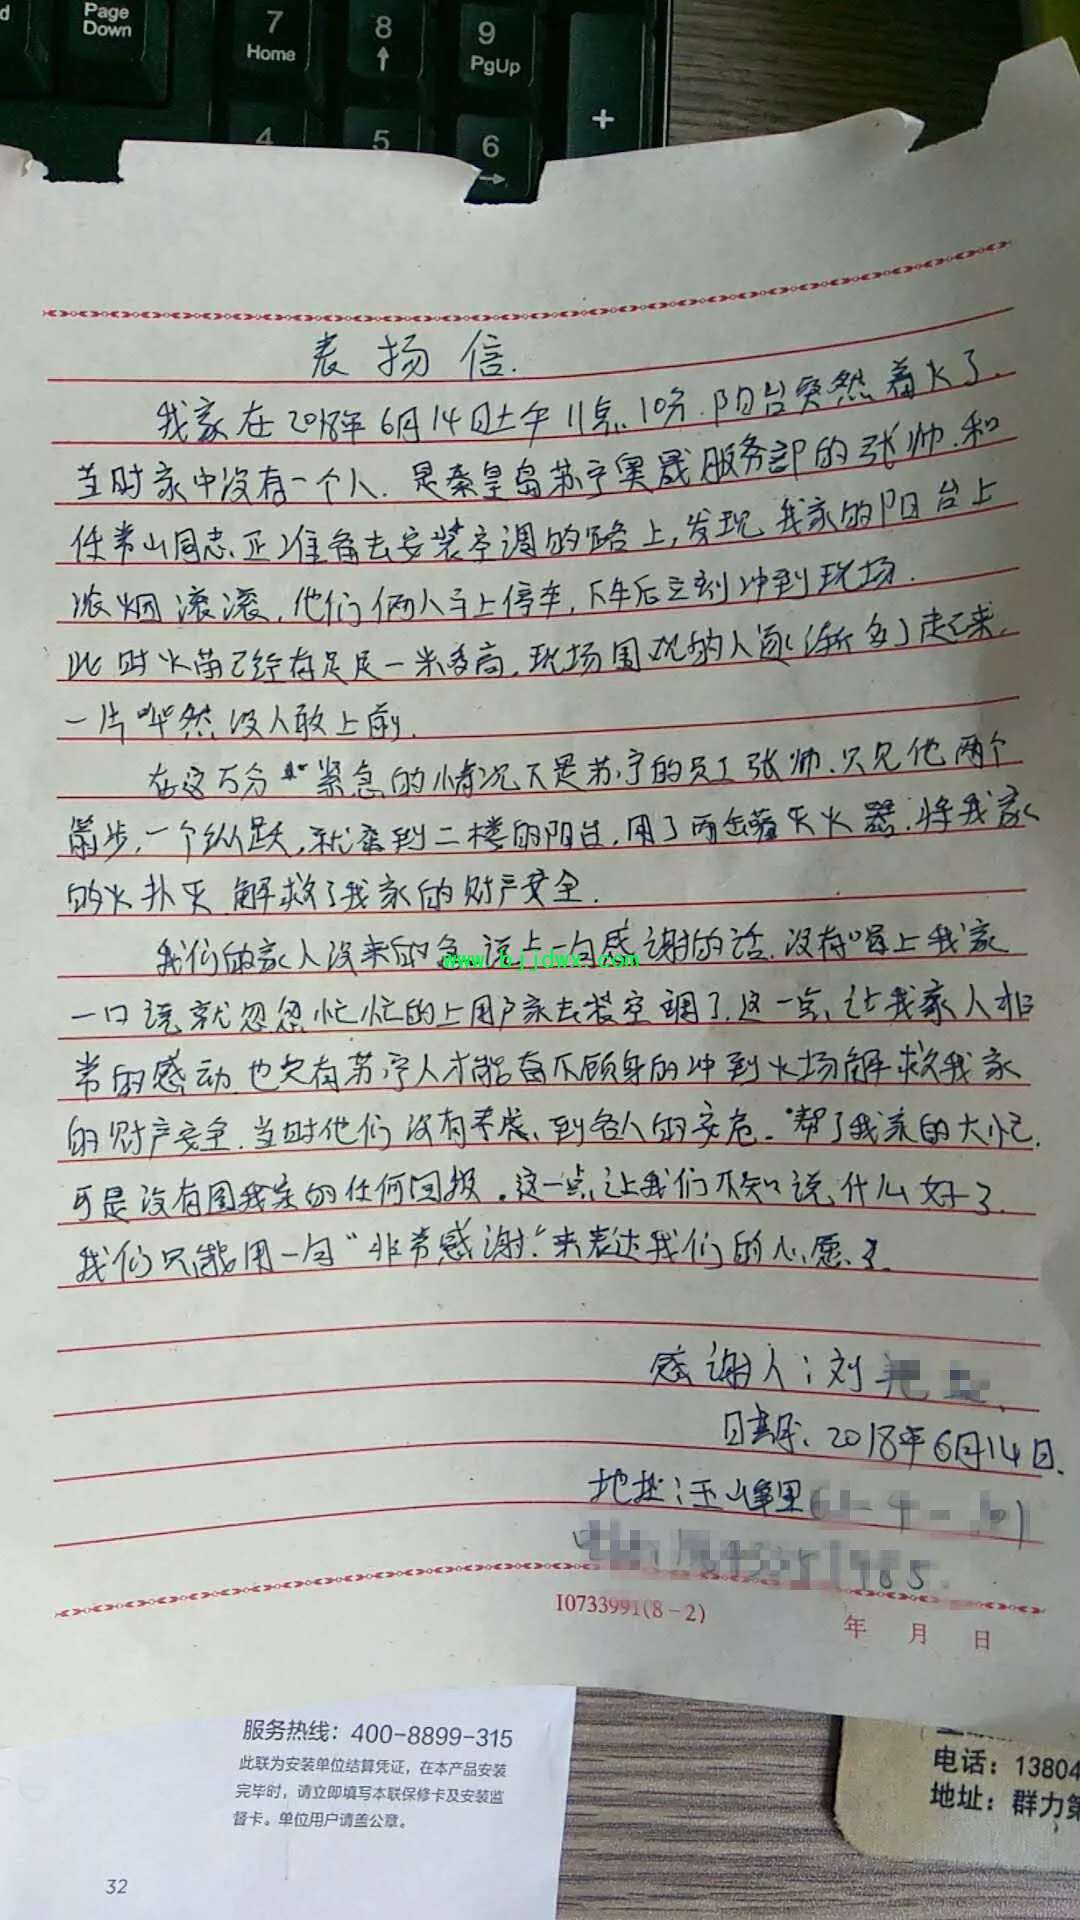 Page
Down
7
Home
8
↑
9
PgUp
+
4
5
6
→
表扬信.
我家在2018年6月14日上午11点10分.阳台突然着火了.
当时家中没有一个人.是秦皇岛苏宁奥晟服务部的张帅.和
任常山同志.正准备去安装空调的路上,发现我家的阳台上
浓烟滚滚.他们俩人马上停车,下车后立刻冲到现场.
此时火苗已经有足足一米多高.现场围观的人逐渐多了起来.
一片哗然没人敢上前.
在这万分紧急的情况下是苏宁的员工张帅.只见他两个
箭步.一个纵跃,就来到二楼的阳台.用了两个灭火器.将我家
的火扑灭.解救了我家的财产安全.
我们的家人没来的急说上一句感谢的话.没有喝上我家
一口水就忽忽忙忙的上用户家去装空调了.这一点,让我家人非
常的感动.也只有苏宁人才能奋不顾身的冲到火场解救我家
的财产安全.当时他们没有考虑到各人的安危.帮了我家的大忙.
可是没有图我家的任何回报.这一点让我们不知说什么好了.
我们只能用一句"非常感谢."来表达我们的心愿了.
感谢人:刘
日期:2018年6月14日.
地址:玉峰里
I0733991(8-2)
年 月 日
www.bjjdwx.com
服务热线：400-8899-315
此联为安装单位结算凭证，在本产品安装
完毕时，请立即填写本联保修卡及安装监
督卡。单位用户请盖公章。
32
电话：13804
地址：群力第